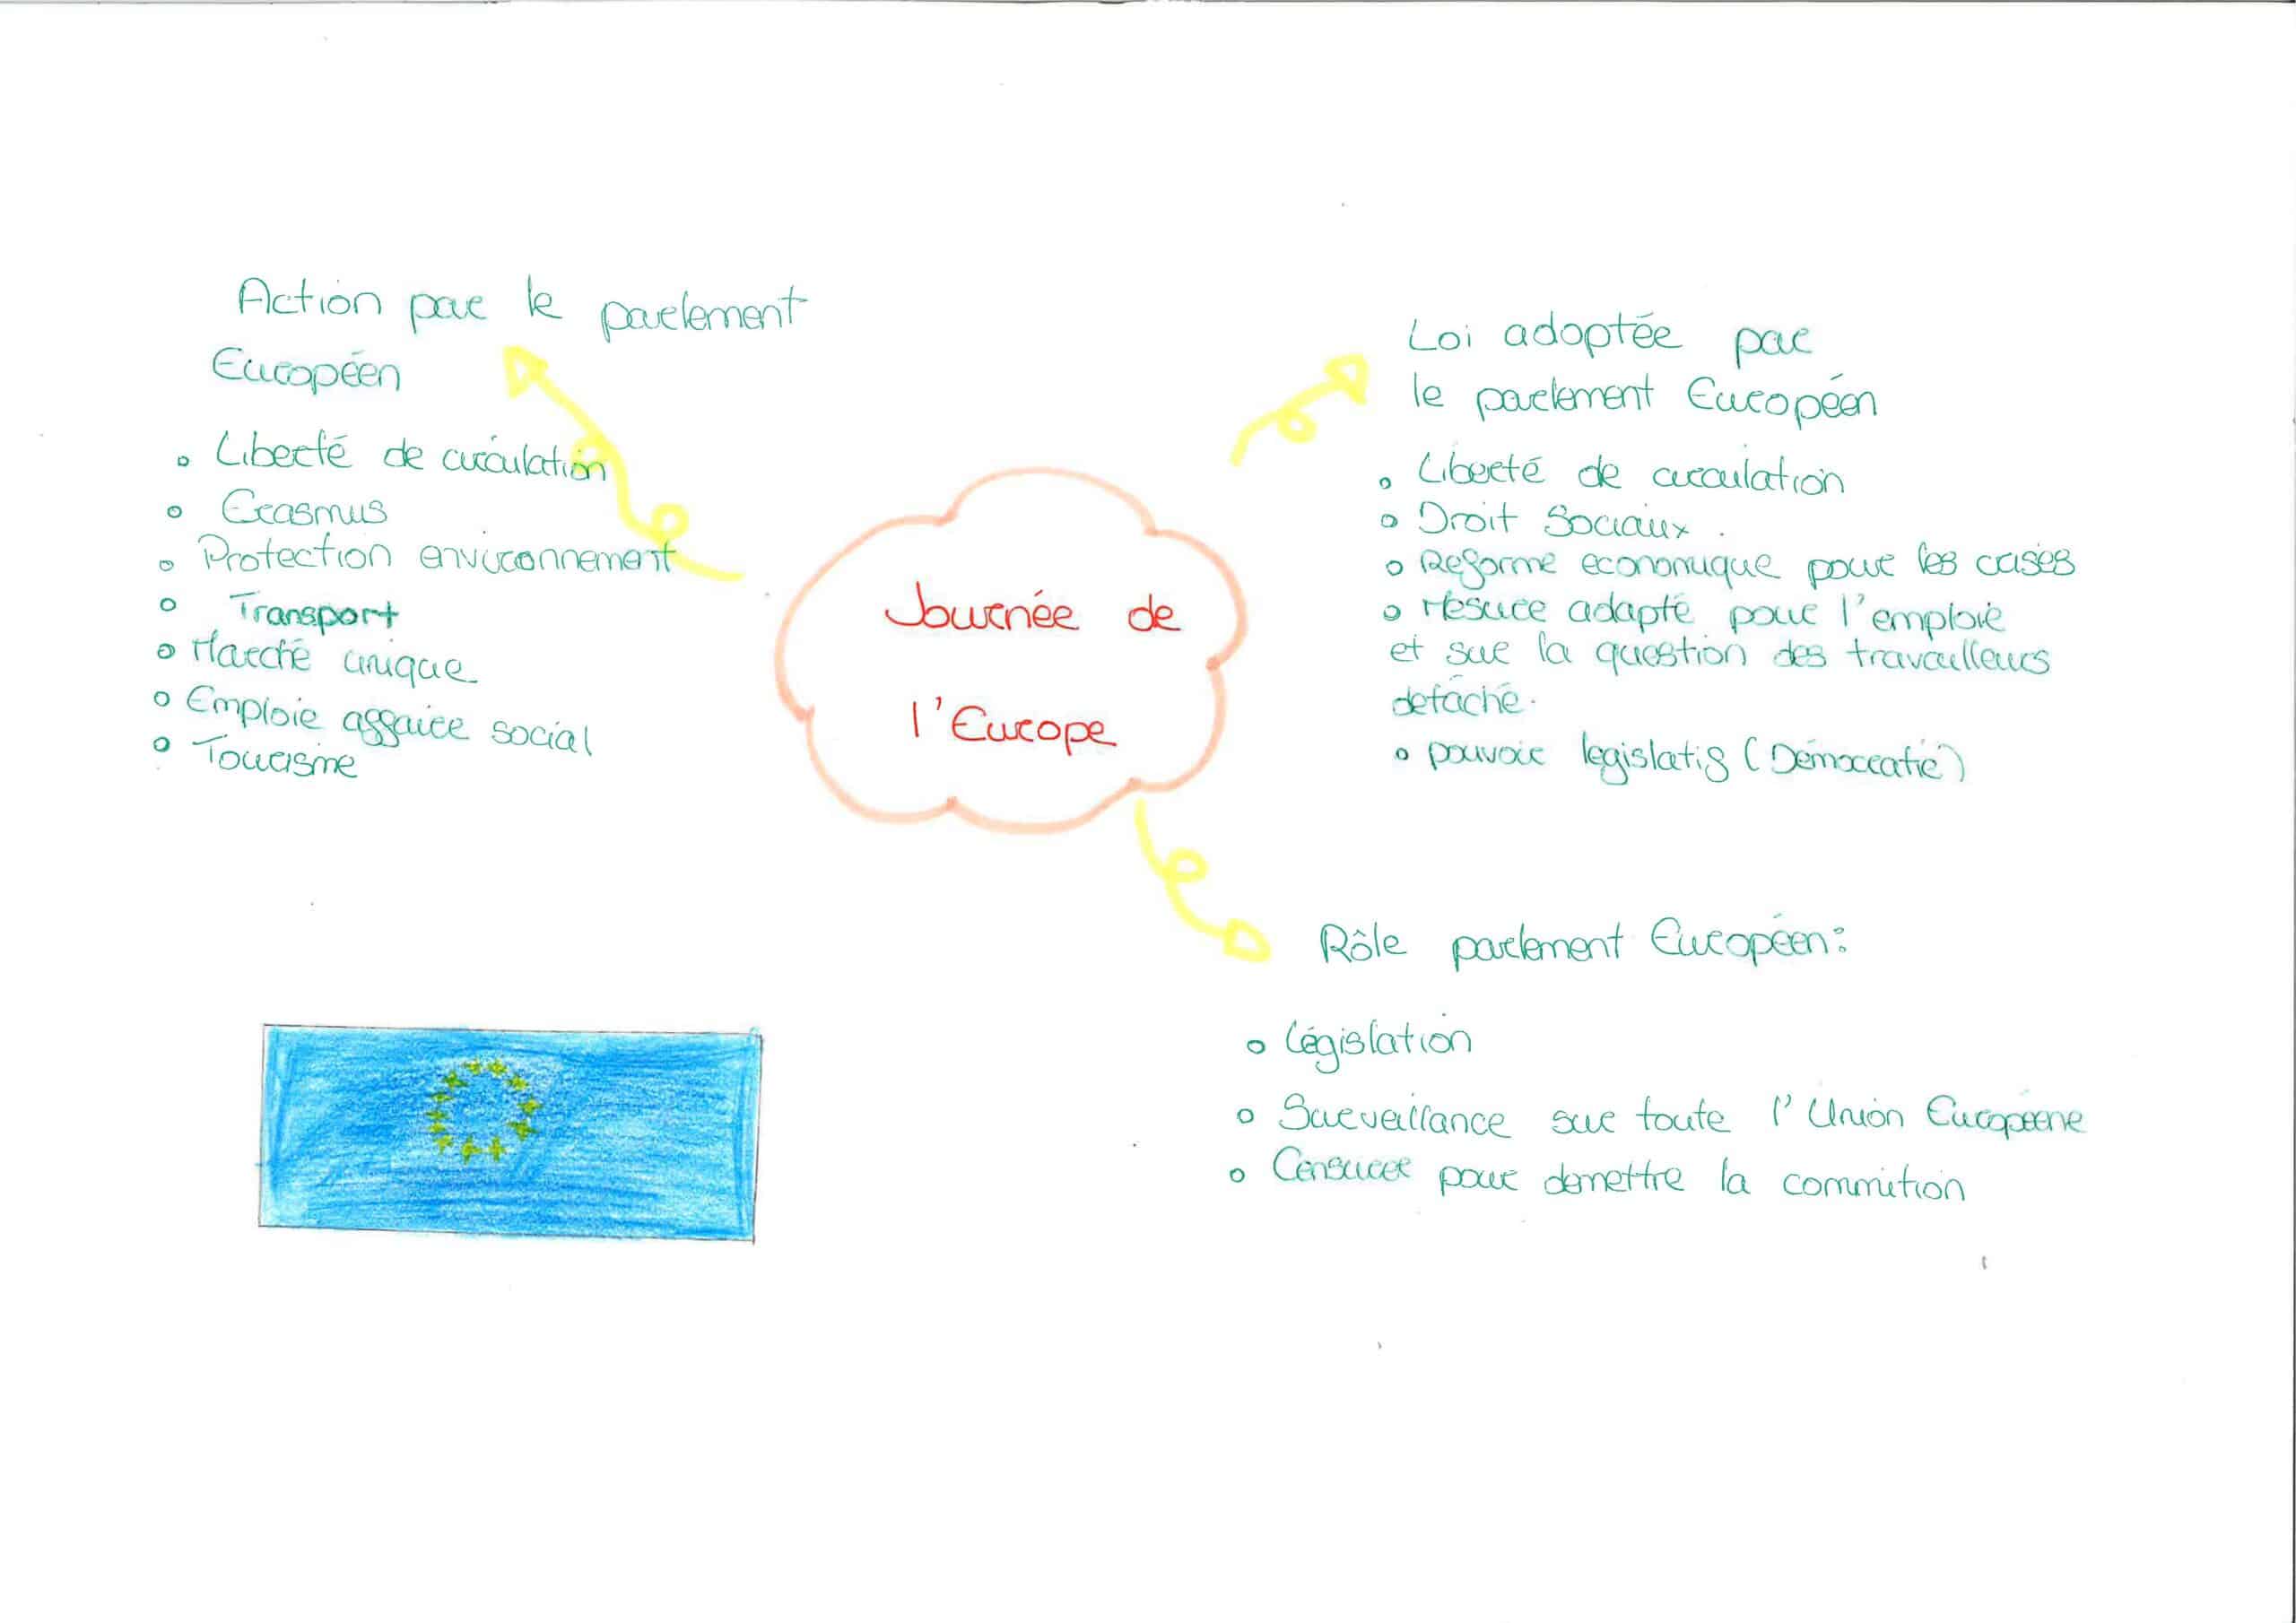 Action par le parlement
Européen
Liberté de circulation
Erasmus
Protection environnement
Transport
Marché unique
Emploie affaire social
Tourisme
Journée de
l'Europe
Loi adoptée par
le parlement Européen
Liberté de circulation
Droit Sociaux.
Reforme economique pour les crises
Mesure adapté pour l'emploie
et sur la question des travailleurs
detaché.
pouvoir legislatif (Démocratie)
Rôle parlement Européen:
Législation
Surveillance sur toute l'Union Européene
Censurer pour demettre la commition